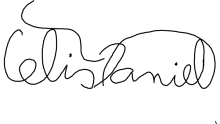 Celis Daniel